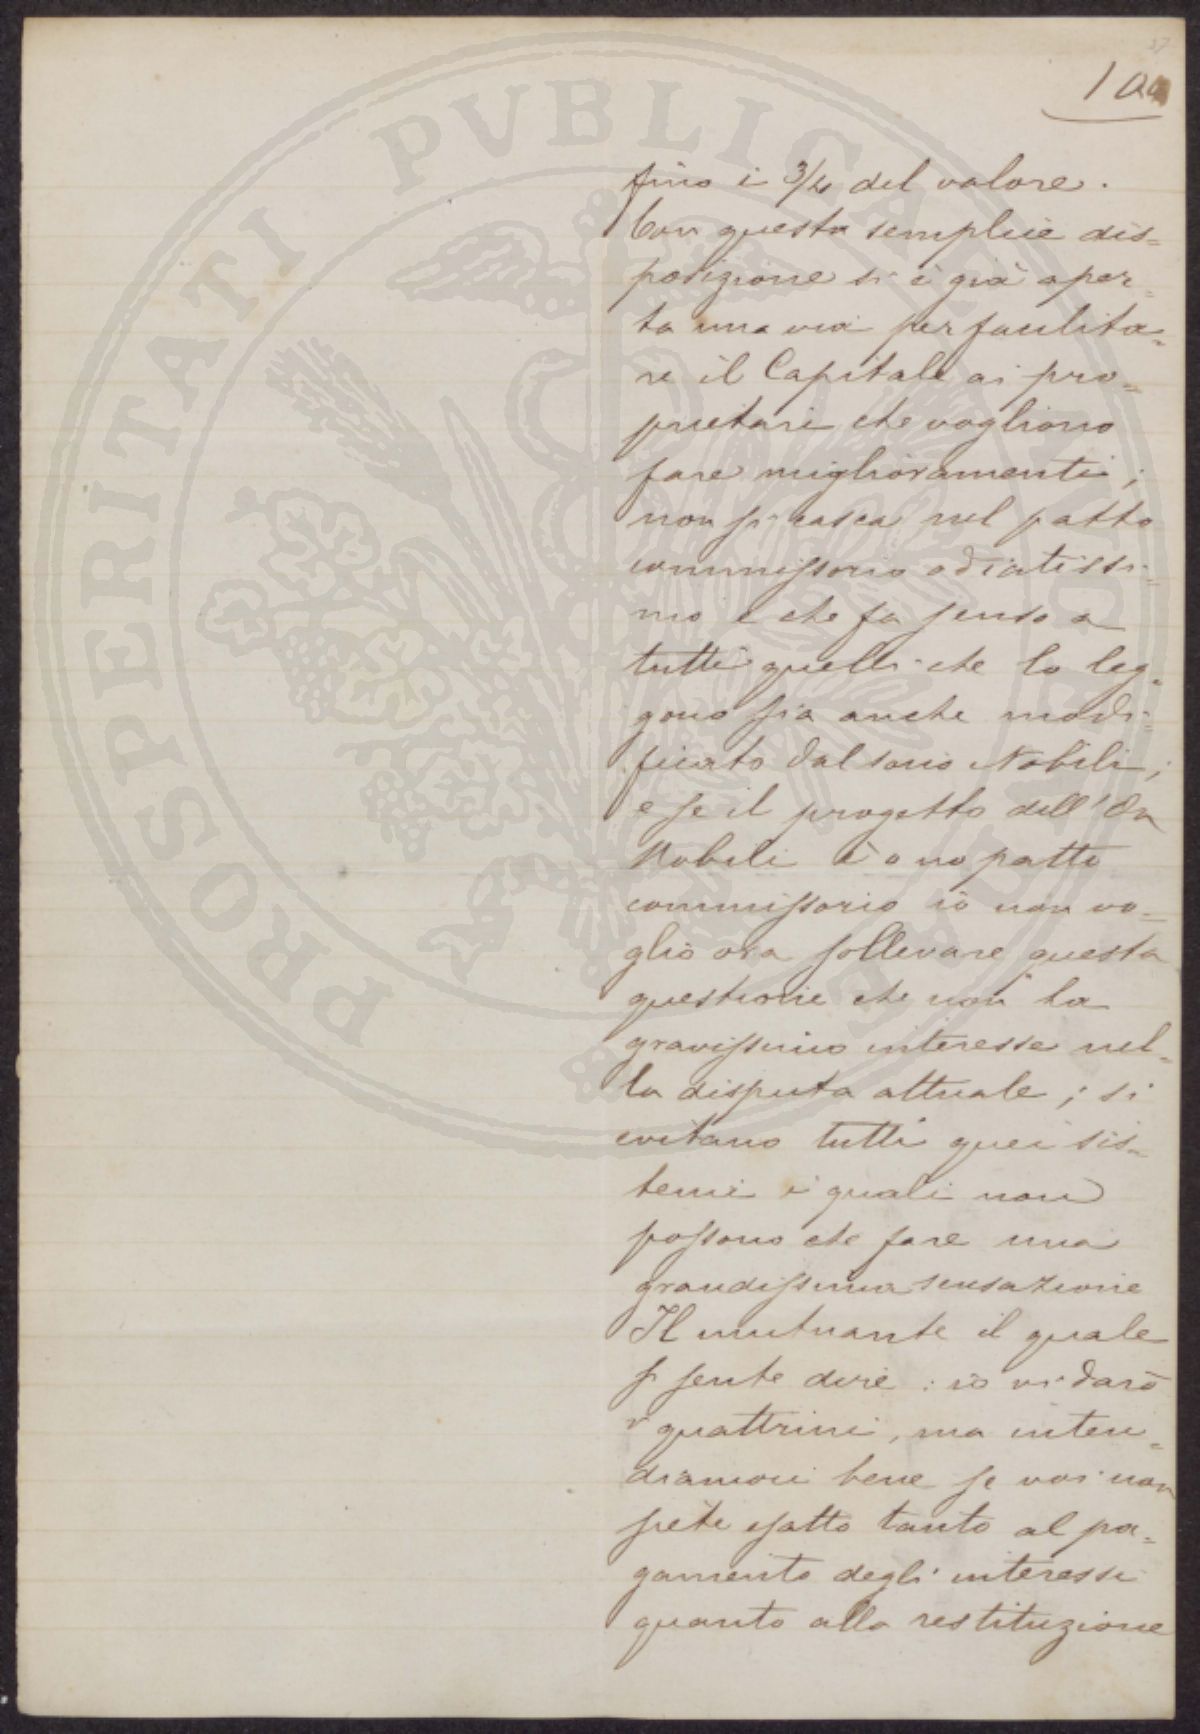 27
100
PROSPERITATI PUBLICAE AUGENDAE
fino i 3/4 del valore.
Con questa semplice dis=
posizione si è già aper=
ta una via per facilita=
re il Capitale ai pro=
prietari che vogliono
fare miglioramenti;
non si casca nel patto
commissorio odiatissi=
mo e che fa senso a
tutti quelli che lo leg=
gono sia anche modi=
ficato dal socio Nobili;
e se il progetto dell'On
Nobili è o no patto
commissorio io non vo=
glio ora sollevare questa
questione che non ha
gravissimo interesse nel=
la disputa attuale; si
evitano tutti quei sis=
temi i quali non
possono che fare una
grandissima sensazione
Il mutuante il quale
si sente dire: io vi darò
i quattrini, ma inten=
diamoci bene se voi non
siete esatto tanto al pa=
gamento degli interessi
quanto alla restituzione